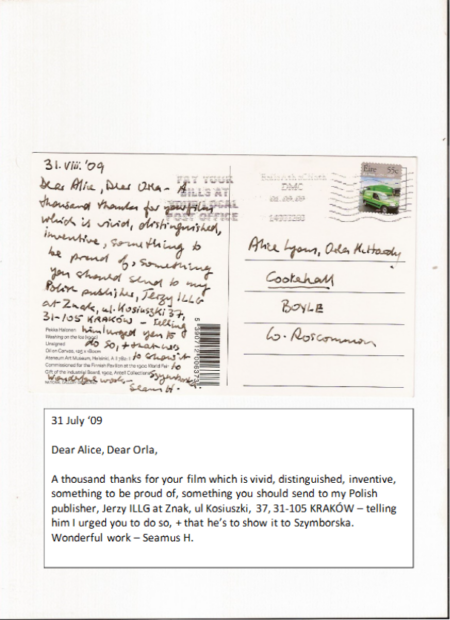 31. viii. '09
Dear Alice, Dear Orla – A
thousand thanks for your film
which is vivid, distinguished,
inventive, something to
be proud of, something
you should send to my
Polish publisher, Jerzy ILLG
at Znak, ul. Kosiuszki 37,
31-105 KRAKÓW – telling
him I urged you to
do so, + that he's
to show it
to
Szymborska.
Wonderful work –
Seamus H.
Pekka Halonen
Meeting on the
Unsigned
Oil on Canvas,
Ateneum Art Museum, Helsinki,
Commissioned for the Finnish Pavilion at the 1900 World Fair
PAY YOUR
BILLS AT
YOUR LOCAL
POST OFFICE
DMC
01.09.09
Éire 55c
Alice Lyons, Orla
Cootehall
BOYLE
Co. Roscommon
31 July ‘09
Dear Alice, Dear Orla,
A thousand thanks for your film which is vivid, distinguished, inventive,
something to be proud of, something you should send to my Polish
publisher, Jerzy ILLG at Znak, ul Kosiuszki, 37, 31-105 KRAKÓW – telling
him I urged you to do so, + that he’s to show it to Szymborska.
Wonderful work – Seamus H.